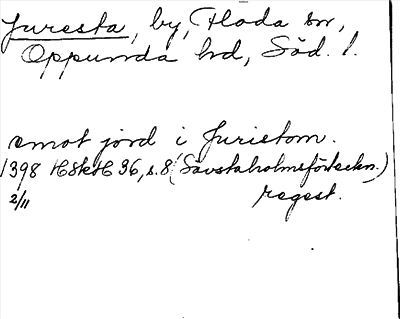 Juresta, by, Floda sn,
Oppunda hd, Söd. l.
emot jord i Juristom.
1398 HSkH 36, s. 8 (Sävstaholmsförteckn.)
2/11 regest.